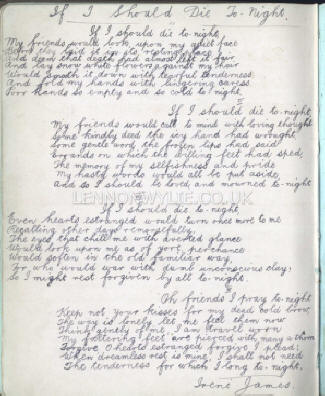 If I Should Die To-Night.
If I should die to-night
My friends would look upon my quiet face
Before they laid it in its resting place
And deem that death had almost left it fair
And lay snow white flowers against my hair
Would smooth it down with tearful tenderness
And fold my hands with lingering caress
Poor hands so empty and so cold to-night.
II
If I should die to-night
My friends would call to mind with loving thought
Some kindly deed the icy hand had wrought
Some gentle word the frozen lips had said
Errands on which the willing feet had sped,
The memory of my selfishness and pride
My hasty words would all be put aside,
And so I should be loved, and mourned to-night
If I should die to-night
Even hearts estranged would turn once more to me
Recalling other days remorsefully,
The eyes that chill me with averted glance
Would look upon me as of yore, perchance
Would soften in the old familiar way,
For who would war with dumb unconscious clay;
So I might rest forgiven by all to-night.
Oh friends I pray to-night
Keep not your kisses for my dead cold brow,
The way is lonely let me feel them now
Think gently of me, I am travel worn
My faltering feet are pierced with many a thorn
Forgive O hearts estranged forgive I plead!
When dreamless rest is mine, I shall not need
The tenderness for which I long to-night.
Irene James.
LENNONWYLIE.CO.UK